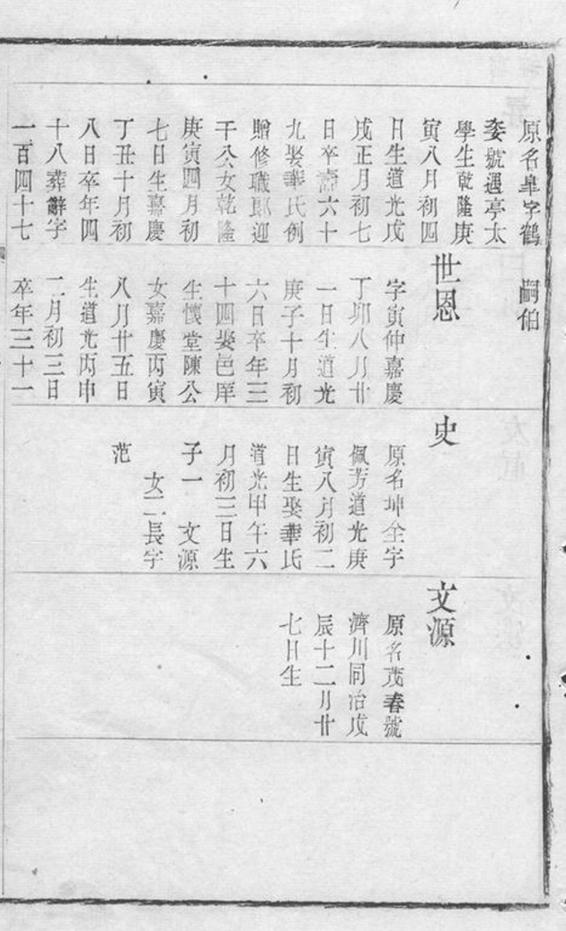 原名皐字鶴
號遇亭太
學生乾隆庚
寅八月初四
日生道光戊
戌正月初七
日卒壽六十
九娶華氏例
贈修職郎迎
千公女乾隆
庚寅四月初
七日生嘉慶
丁丑十月初
八日卒年四
十八葬辭字
一百四十七
嗣伯
世恩
字寅仲嘉慶
丁卯八月廿
一日生道光
庚子十月初
六日卒年三
十四娶邑庠
生懷堂陳公
女嘉慶丙寅
八月廿五日
生道光丙申
二月初三日
卒年三十一
史
原名坤全字
佩芳道光庚
寅八月初二
日生娶華氏
道光甲午六
月初三日生
子一 文源
女二長字
范
文源
原名茂春號
濟川同治戊
辰十二月廿
七日生